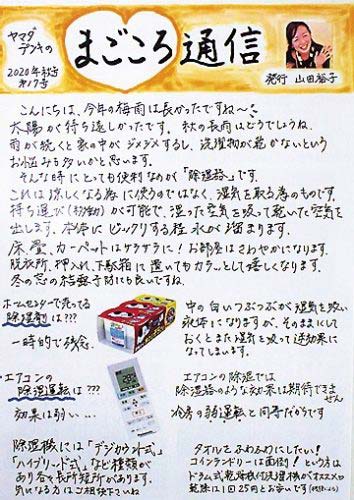 ヤマダ
デンキの
まごころ通信
2020年秋号
第17号
発行 山田裕子
こんにちは、今年の梅雨は長かったですね〜
太陽が待ち遠しかったです。秋の長雨はどうでしょうね。
雨が続くと家の中がジメジメするし、洗濯物が乾かないという
お悩みも多いかと思います。
そんな時にとっても便利なのが「除湿器」です。
これは涼しくなる為に使うのではなく、湿気を取る為のものです。
持ち運び(移動)が可能で、湿った空気を吸って乾いた空気を
出します。本体にビックリする程水が溜まります。
床、畳、カーペットはサラサラに!お部屋はさわやかになります。
脱衣所、押入れ、下駄箱に置いてもカラッとして嬉しくなります。
冬の窓の結露予防にも良いですね。
ホームセンターで売ってる
除湿剤は???
一時的で残念。
中の白いつぶつぶが湿気を吸い
液体になりますが、そのままにして
おくとまた湿気を吸って逆効果に
なってしまいます。
エアコンの
除湿運転は???
効果は弱い…
エアコンの除湿では
除湿器のような効果は期待できま
せん
冷房の弱運転と同等だからです
除湿機には「デシカント式」
「ハイブリッド式」など種類が
あり各々長所短所があります。
気になる方はご相談下さいね
タオルをふわふわにしたい!
コインランドリーは面倒!という方は
ドラム式乾燥機付洗濯機がオススメ
乾燥は1回25円とお安いです